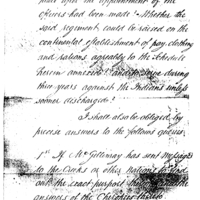 had after the appointment of the
officers had been made? Whether the
said regiment could be raised on the
continental establishment of pay, clothing
and rations agreeably to the schedule
herein annexed? and to serve during
three years against the Indians unless
sooner discharged?
I shall also be obliged by
precise answers to the following queries.
1st If Mr Gilleway has sent messages
to the Creeks or other nations to
out the exact purport
answers of the